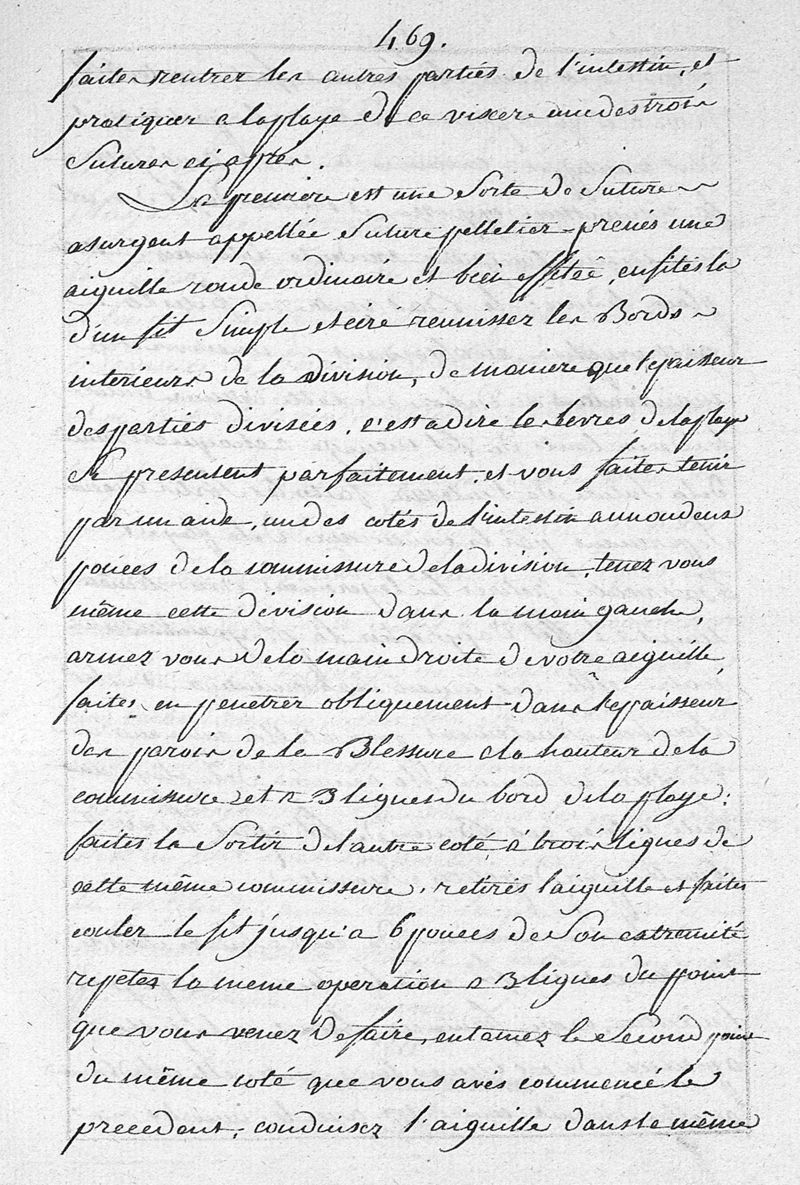 469.
faites rentrer les autres parties de l'intestin, et
pratiquer a la playe de ce viscere une des trois
Sutures ci apres.
La premiere est une Sorte de Suture
a surgent appellée Suture pelletier prenés une
aiguille ronde ordinaire et bien effilée, enfilés la
d'un fil Simple et ciré reunissez les Bords
interieurs de la division, de maniere que l'epaisseur
des parties divisées, c'est a dire les levres de la playe
Se presentent parfaitement, et vous faites tenir
par un aide, un des cotés de l'intestin a un ou deux
pouces de la commissure de la division, tenez vous
même cette division dans la main gauche,
armez vous de la main droite de votre aiguille,
faites en penetrer obliquement dans l'epaisseur
des parois de la Blessure a la hauteur de la
commissure et a 3 lignes du bord de la playe:
faites la Sortir de l'autre coté, à trois lignes de
cette même commissure, retirés l'aiguille et faites
couler le fil jusqu'a 6 pouces de Son extremité
repetez la meme operation a 3 lignes du point
que vous venez de faire, entamez le Second point
du même coté que vous avés commencé le
precedent, conduisez l'aiguille dans le même